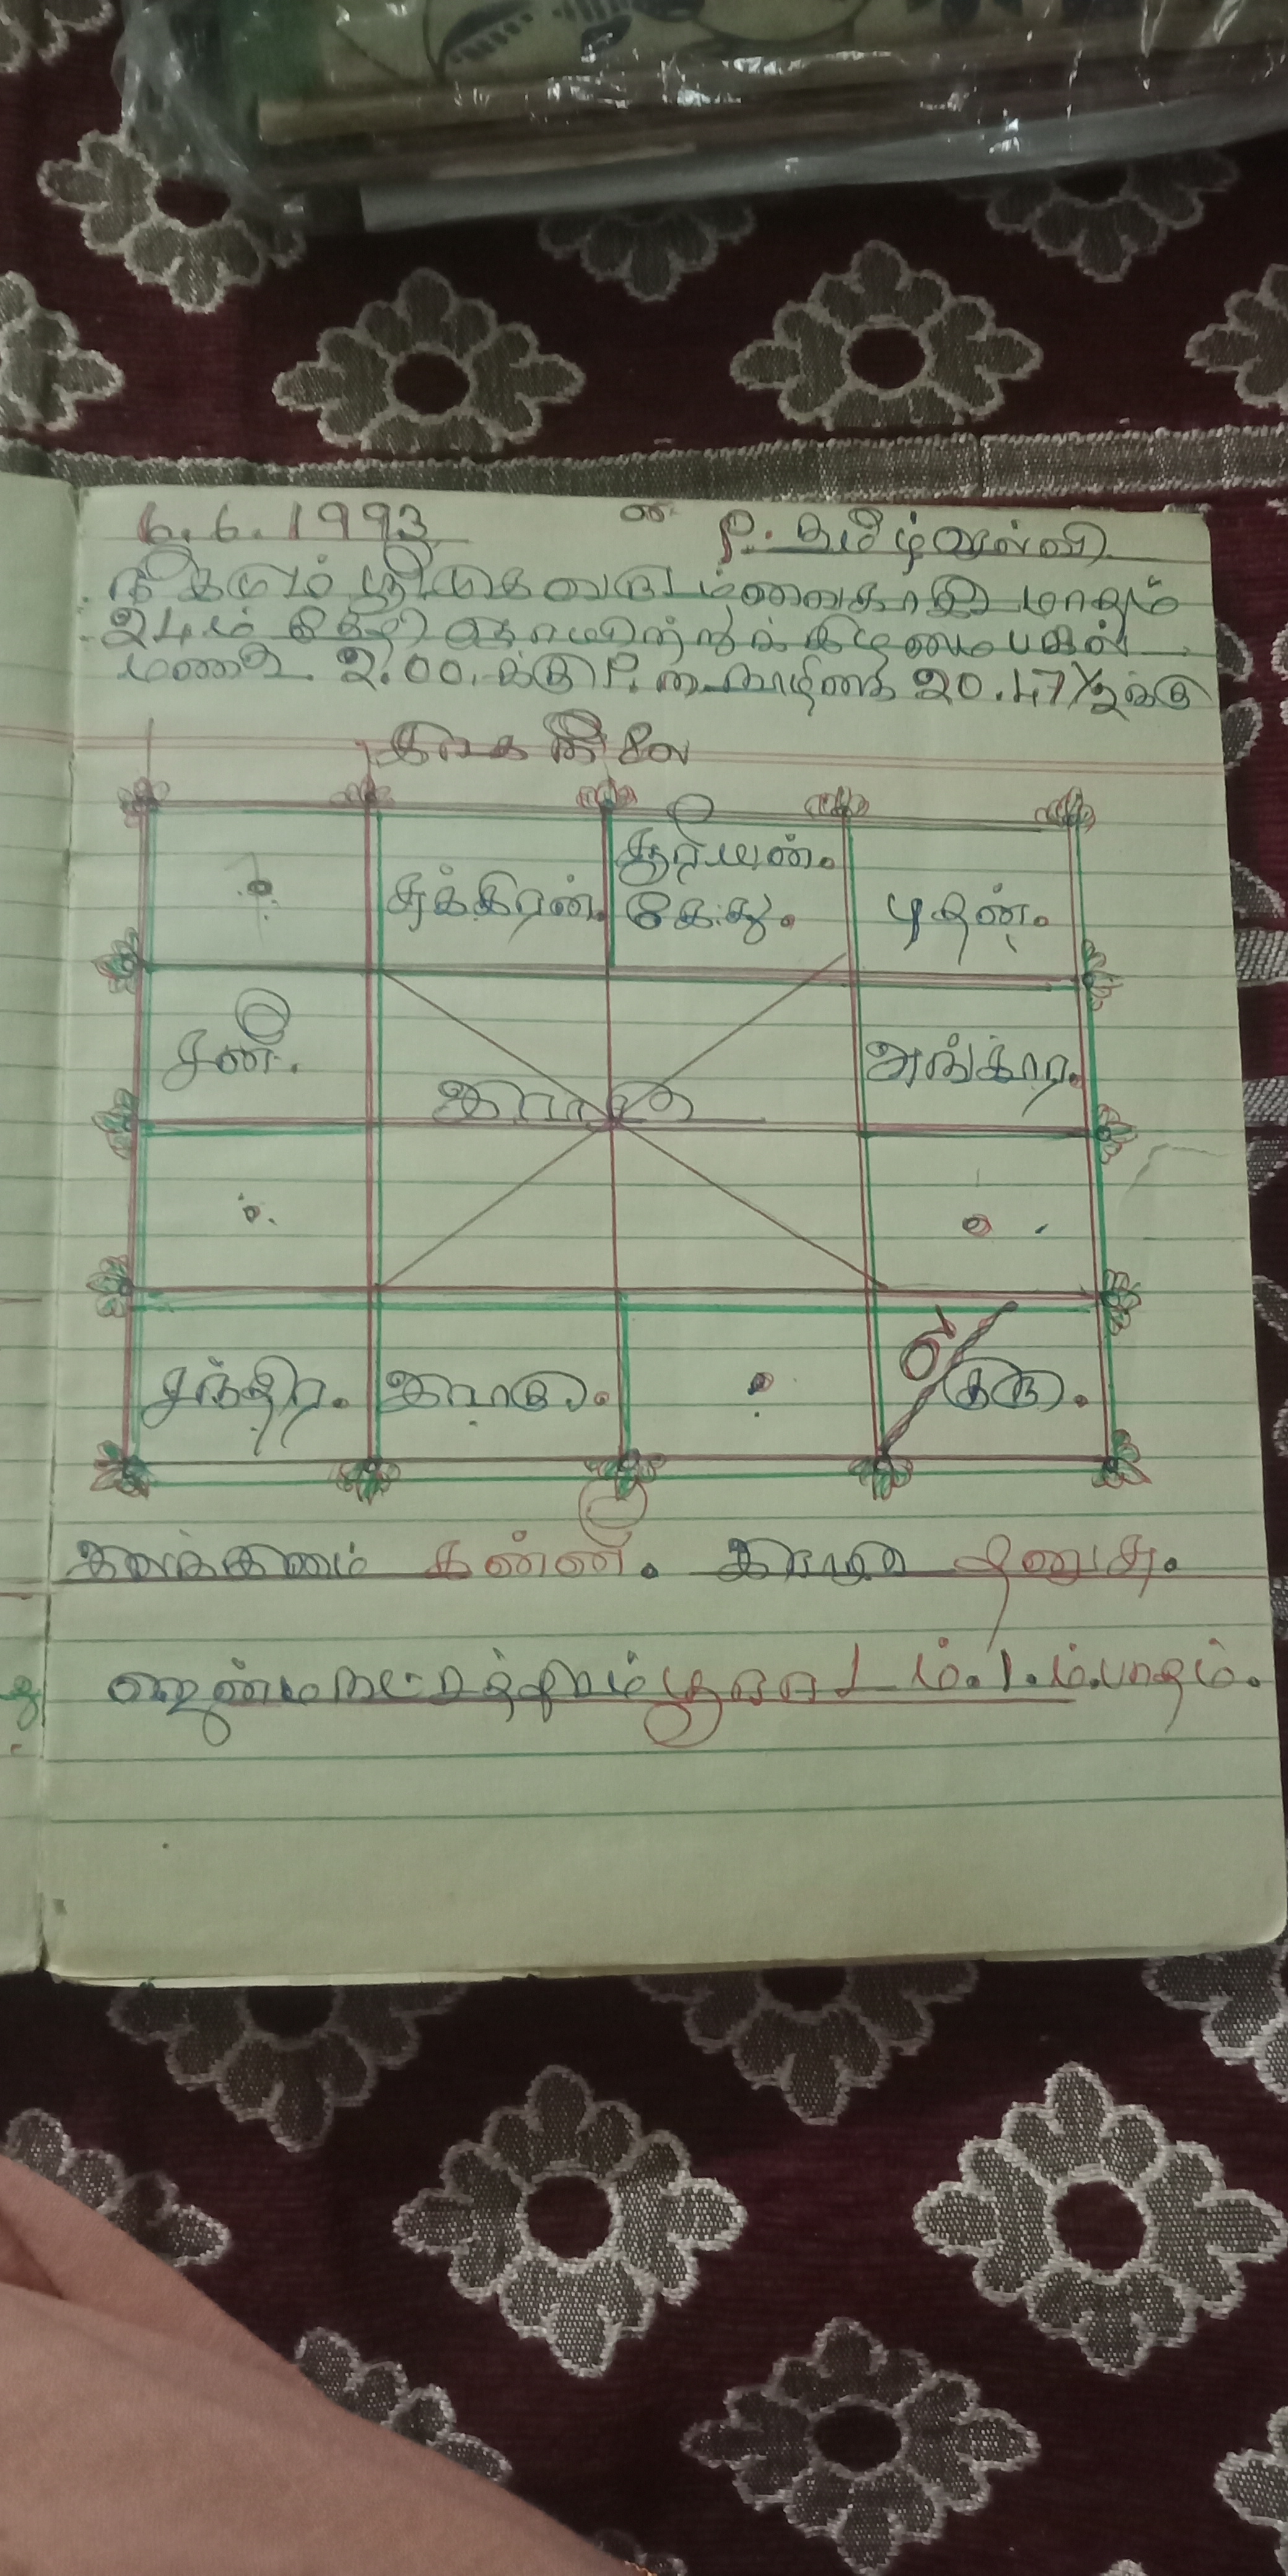 6.6.1993 P. தமிழ்வள்ளி
நிகழும் ஸ்ரீமுக வருடம் வைகாசி மாதம்
24ம் தேதி ஞாயிற்றுக் கிழமை பகல்
மணி 2.00.க்கு P. நாழிகை 20.47½க்கு
கிரக நிலை
சுக்கிரன். சூரியன். கேது. புதன்.
சனி. அங்கார.
இராசி
சந்திர. இராகு. ல/ குரு.
இலக்கணம் கன்னி. இராசி தனுசு.
ஜன்ம நட்சத்திரம் பூராடம்.1.ம்.பாதம்.